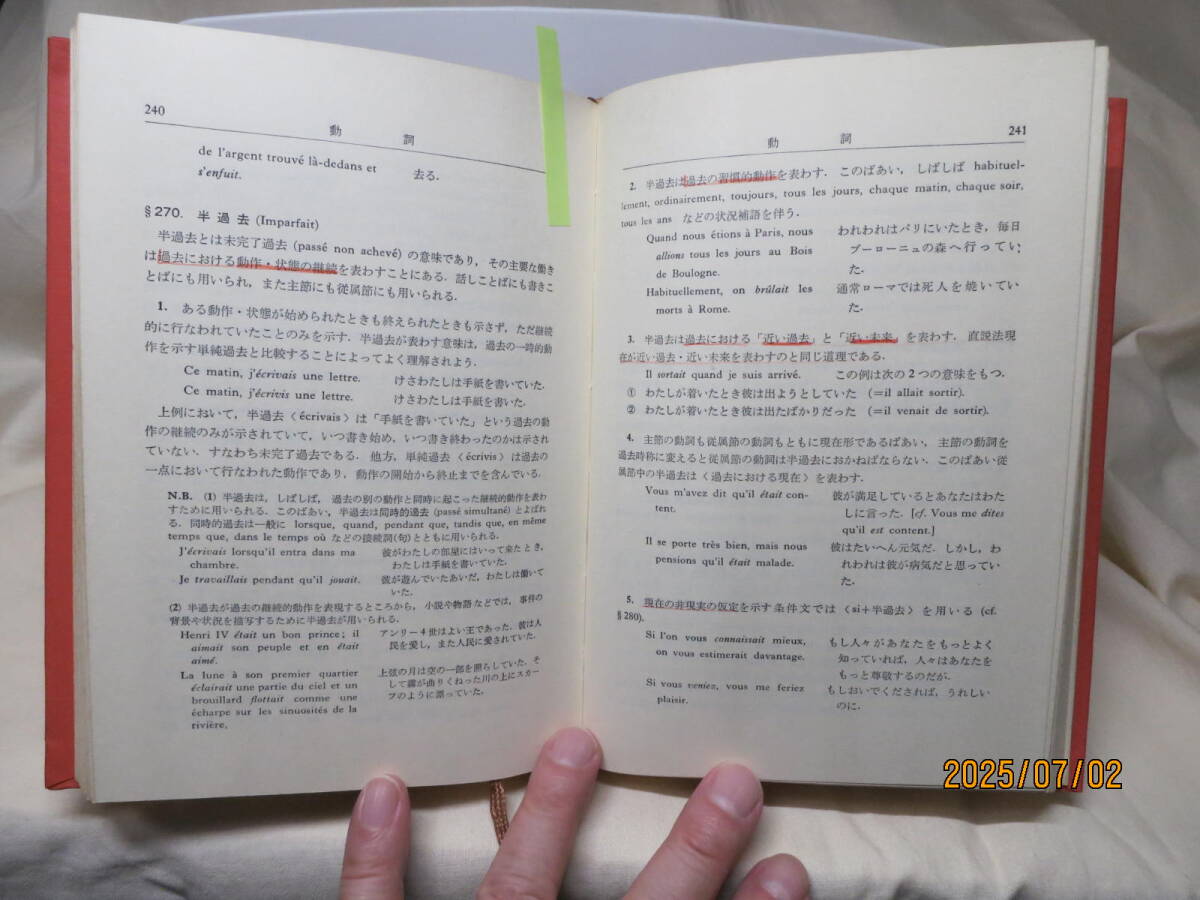 240
動 詞
de l'argent trouvé là-dedans et
s'enfuit.
去る.
§270. 半過去 (Imparfait)
半過去とは未完了過去 (passé non achevé) の意味であり, その主要な働き
は過去における動作・状態の継続を表わすことにある. 話しことばにも書きこ
とばにも用いられ, また主節にも従属節にも用いられる.
1. ある動作・状態が始められたときも終えられたときも示さず, ただ継続
的に行なわれていたことのみを示す. 半過去が表わす意味は, 過去の一時的動
作を示す単純過去と比較することによってよく理解されよう.
Ce matin, j'écrivais une lettre. けさわたしは手紙を書いていた.
Ce matin, j'écrivis une lettre. けさわたしは手紙を書いた.
上例において, 半過去〈écrivais〉は「手紙を書いていた」という過去の動
作の継続のみが示されていて, いつ書き始め, いつ書き終わったのかは示され
ていない. すなわち未完了過去である. 他方, 単純過去〈écrivis〉は過去の
一点において行なわれた動作であり, 動作の開始から終止までを含んでいる.
N.B. (1) 半過去は, しばしば, 過去の別の動作と同時に起こった継続的動作を表わ
すために用いられる. このばあい, 半過去は同時的過去 (passé simultané) とよばれ
る. 同時的過去は一般に lorsque, quand, pendant que, tandis que, en même
temps que, dans le temps où などの接続詞(句)とともに用いられる.
J'écrivais lorsqu'il entra dans ma
chambre.
彼がわたしの部屋にはいって来たとき,
わたしは手紙を書いていた.
Je travaillais pendant qu'il jouait.
彼が遊んでいたあいだ, わたしは働いて
いた.
(2) 半過去が過去の継続的動作を表現するところから, 小説や物語などでは, 事件の
背景や状況を描写するために半過去が用いられる.
Henri IV était un bon prince; il
aimait son peuple et en était
aimé.
アンリー4世はよい王であった. 彼は人
民を愛し, また人民に愛されていた.
La lune à son premier quartier
éclairait une partie du ciel et un
brouillard flottait comme une
écharpe sur les sinuosités de la
rivière.
上弦の月は空の一部を照らしていた. そ
して霧が曲りくねった川の上にスカー
フのように漂っていた.
動 詞
241
2. 半過去は過去の習慣的動作を表わす. このばあい, しばしば habituel-
lement, ordinairement, toujours, tous les jours, chaque matin, chaque soir,
tous les ans などの状況補語を伴う.
Quand nous étions à Paris, nous
allions tous les jours au Bois
de Boulogne.
われわれはパリにいたとき, 毎日
ブーローニュの森へ行ってい
た.
Habituellement, on brûlait les
morts à Rome.
通常ローマでは死人を焼いてい
た.
3. 半過去は過去における「近い過去」と「近い未来」を表わす. 直説法現
在が近い過去・近い未来を表わすのと同じ道理である.
Il sortait quand je suis arrivé. この例は次の2つの意味をもつ.
① わたしが着いたとき彼は出ようとしていた (=il allait sortir).
② わたしが着いたとき彼は出たばかりだった (=il venait de sortir).
4. 主節の動詞も従属節の動詞もともに現在形であるばあい, 主節の動詞を
過去時称に変えると従属節の動詞は半過去におかねばならない. このばあい従
属節中の半過去は〈過去における現在〉を表わす.
Vous m'avez dit qu'il était con-
tent.
彼が満足しているとあなたはわた
しに言った. [cf. Vous me dites
qu'il est content.]
Il se porte très bien, mais nous
pensions qu'il était malade.
彼はたいへん元気だ. しかし, わ
れわれは彼が病気だと思ってい
た.
5. 現在の非現実の仮定を示す条件文では〈si+半過去〉を用いる (cf.
§280).
Si l'on vous connaissait mieux,
on vous estimerait davantage.
もし人々があなたをもっとよく
知っていれば, 人々はあなたを
もっと尊敬するのだが.
Si vous veniez, vous me feriez
plaisir.
もしおいでくだされば, うれしい
のに.
2025/07/02